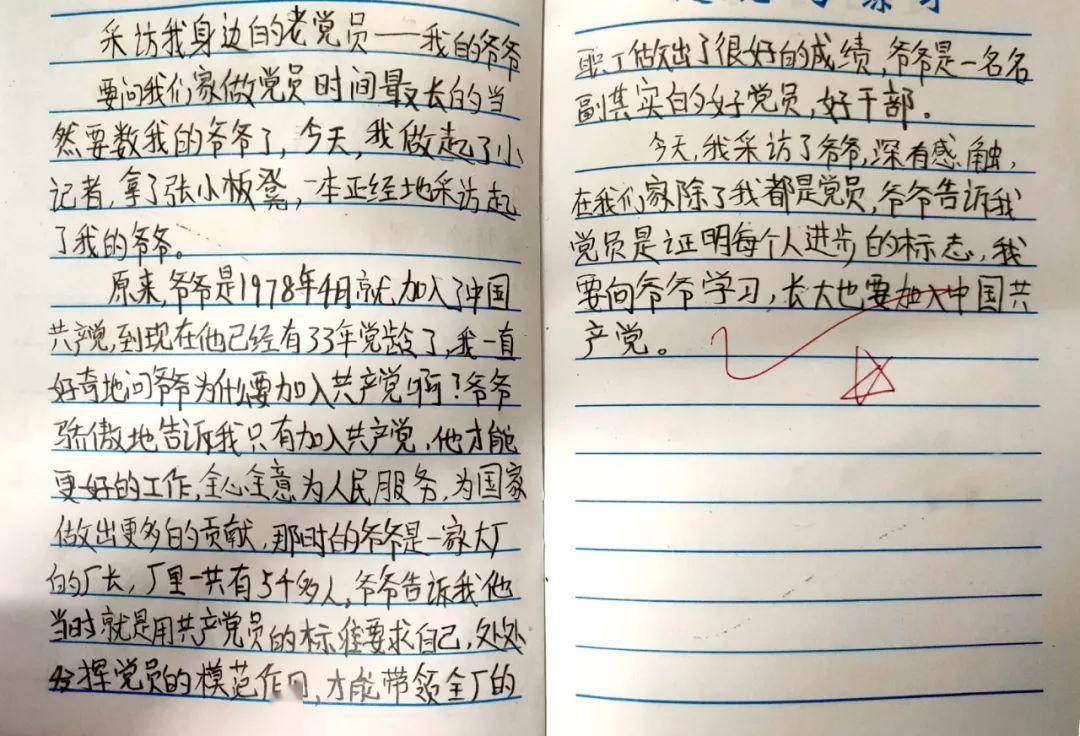 采访我身边的老党员——我的爷爷
要问我们家做党员时间最长的当
然要数我的爷爷了，今天，我做起了小
记者，拿了张小板凳，一本正经地采访起
了我的爷爷。
原来，爷爷是1978年4月就加入了中国
共产党，到现在他已经有33年党龄了，我一直
好奇地问爷爷为什么要加入共产党啊？爷爷
骄傲地告诉我只有加入共产党，他才能
更好的工作，全心全意为人民服务，为国家
做出更多的贡献，那时的爷爷是一家大厂
的厂长，厂里一共有5千多人，爷爷告诉我他
当时就是用共产党员的标准要求自己，处处
发挥党员的模范作用，才能带领全厂的
职工做出了很好的成绩，爷爷是一名名
副其实的好党员，好干部。
今天，我采访了爷爷，深有感触，
在我们家除了我都是党员，爷爷告诉我
党员是证明每个人进步的标志，我
要向爷爷学习，长大也要加入中国共
产党。